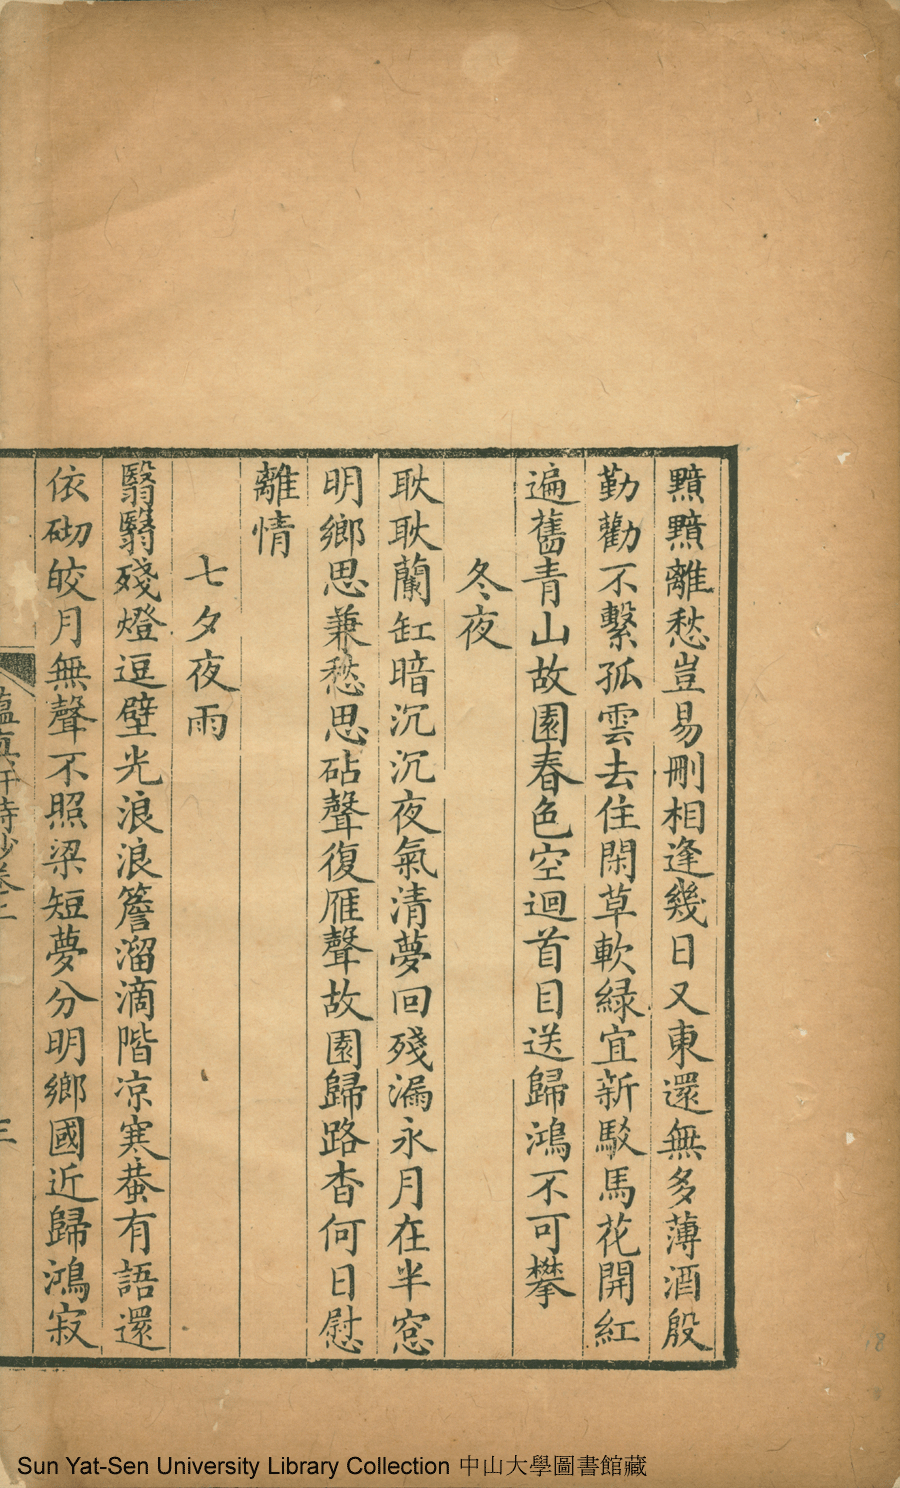 黯黯離愁豈易刪相逢幾日又東還無多薄酒殷
勤勸不繫孤雲去住閑草軟綠宜新駁馬花開紅
遍舊青山故園春色空迴首目送歸鴻不可攀
冬夜
耿耿蘭缸暗沉沉夜氣清夢回殘漏永月在半窓
明鄉思兼愁思砧聲復雁聲故園歸路杳何日慰
離情
七夕夜雨
翳翳殘燈逗壁光浪浪簷溜滴階凉寒蛩有語還
依砌皎月無聲不照梁短夢分明鄉國近歸鴻寂
蘊真軒詩鈔卷上
三
18
Sun Yat-Sen University Library Collection 中山大學圖書館藏